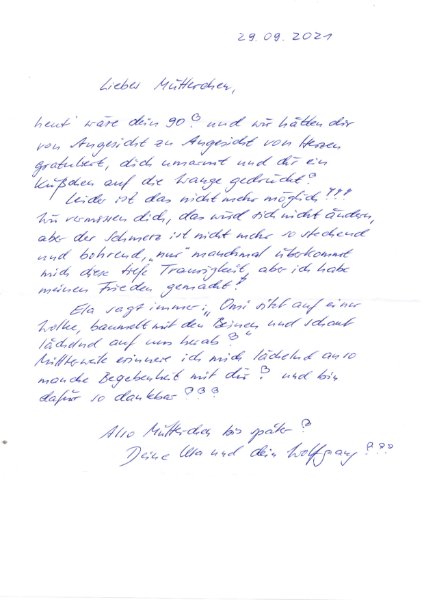 29.09.2021
Liebes Mütterchen,
heut' wäre dein 90? und wir hätten dir
von Angesicht zu Angesicht von Herzen
gratuliert, dich umarmt und dir ein
Küßchen auf die Wange gedrückt?
Leider ist das nicht mehr möglich???
Wir vermissen dich, das wird sich nicht ändern,
aber der Schmerz ist nicht mehr so stechend
und bohrend, „nur" manchmal überkommt
mich diese tiefe Traurigkeit, aber ich habe
meinen Frieden gemacht!
Ela sagt immer: „Omi sitzt auf einer
Wolke, baumelt mit den Beinen und schaut
lächelnd auf uns herab?"
Mittlerweile erinnere ich mich lächelnd an so
manche Begebenheit mit dir? und bin
dafür so dankbar???
Also Mütterchen bis später?
Deine und dein Wolfgang???